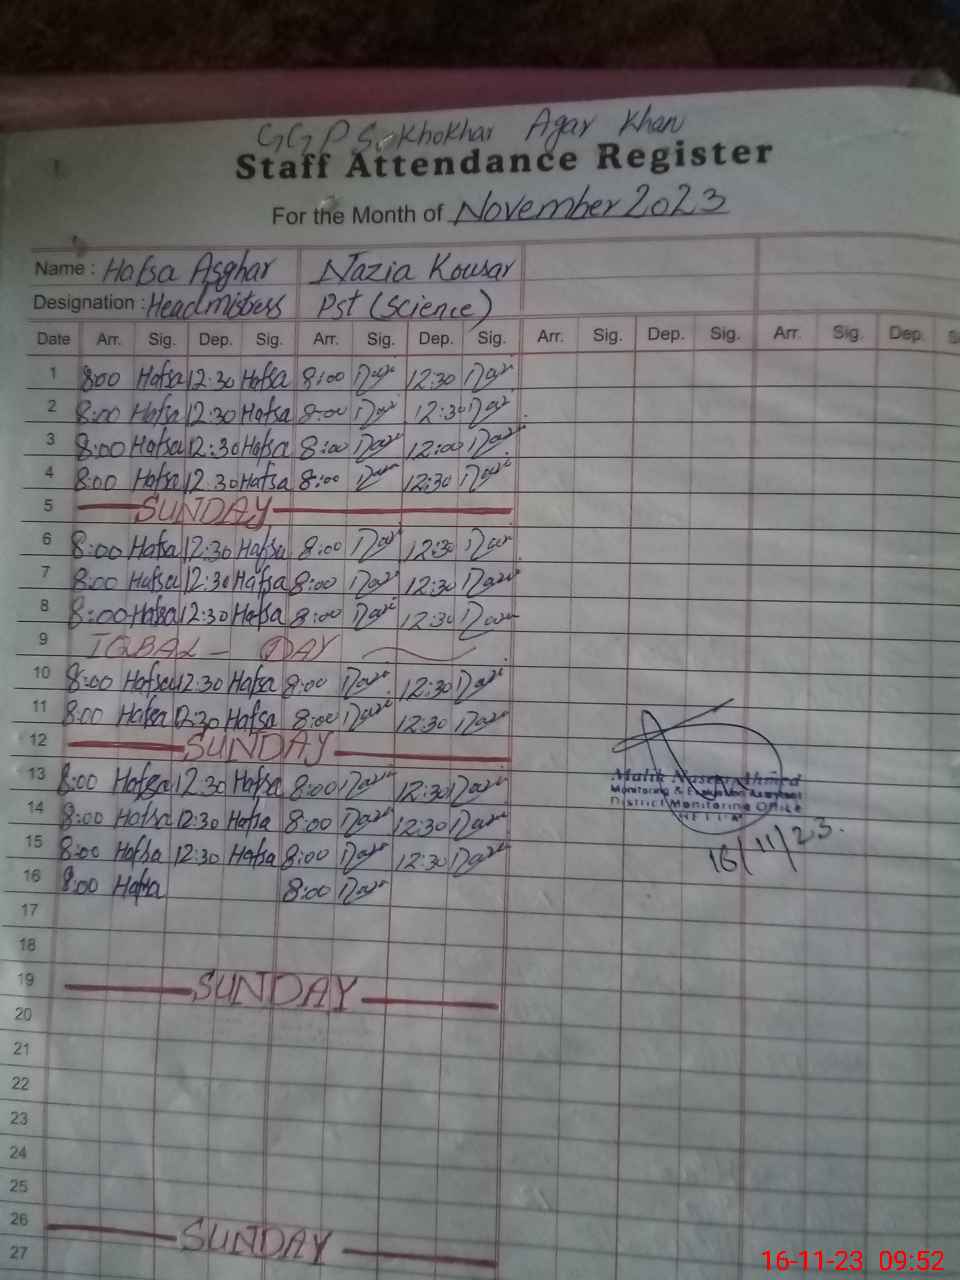 GGPS. Khokhar Agar Khan
Staff Attendance Register
For the Month of November 2023
Name : Hafsa Asghar Nazia Kousar
Designation : Headmistress Pst (Science)
Date Arr. Sig. Dep. Sig. Arr. Sig. Dep. Sig. Arr. Sig. Dep. Sig. Arr. Sig. Dep.
1 8:00 Hafsa 12:30 Hafsa 8:00 12:30
2 8:00 Hafsa 12:30 Hafsa 8:00 12:30
3 8:00 Hafsa 12:30 Hafsa 8:00 12:00
4 8:00 Hafsa 12:30 Hafsa 8:00 12:30
5 SUNDAY
6 8:00 Hafsa 12:30 Hafsa 8:00 12:30
7 8:00 Hafsa 12:30 Hafsa 8:00 12:30
8 8:00 Hafsa 12:30 Hafsa 8:00 12:30
9 IQBAL - DAY
10 8:00 Hafsa 12:30 Hafsa 8:00 12:30
11 8:00 Hafsa 12:30 Hafsa 8:00 12:30
12 SUNDAY
13 8:00 Hafsa 12:30 Hafsa 8:00 12:30
14 8:00 Hafsa 12:30 Hafsa 8:00 12:30
15 8:00 Hafsa 12:30 Hafsa 8:00 12:30
16 8:00 Hafsa 8:00
Malik Ahmed
Monitoring & Evaluation Assistant
District Monitoring Office
16/11/23.
17
18
19 SUNDAY
20
21
22
23
24
25
26 SUNDAY
27
16-11-23 09:52